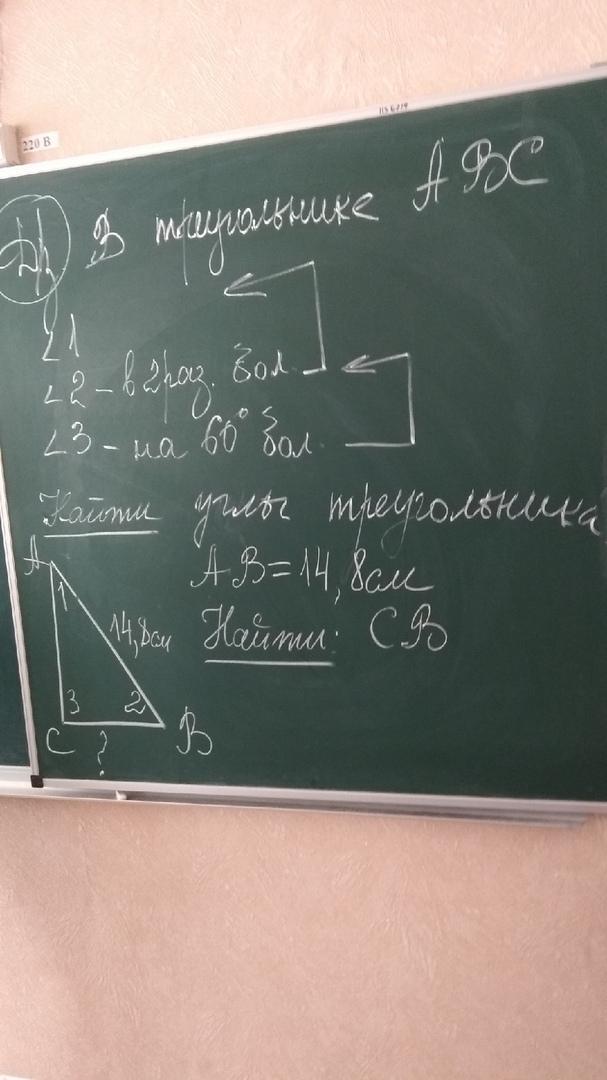 220 В
Д/з В треугольнике ABC
∠1
∠2 – в 2 раз. бол.
∠3 – на 60° бол.
Найти углы треугольника
AB = 14,8 см
Найти: CB
A
1
14,8 см
3 2
C ? B